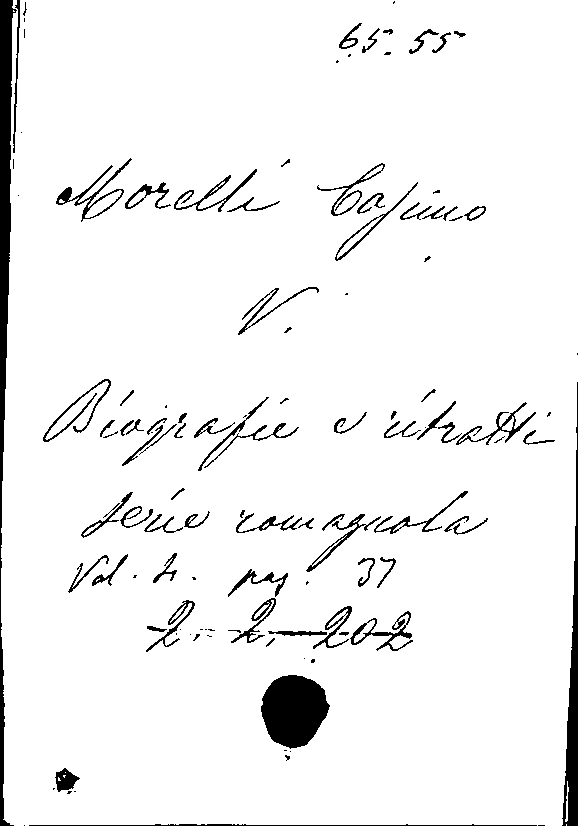 65. 55
Morelli Cosimo
V.
Biografie e ritratti
serie romagnola
Vol. 4. pag. 37
2. 2. 202